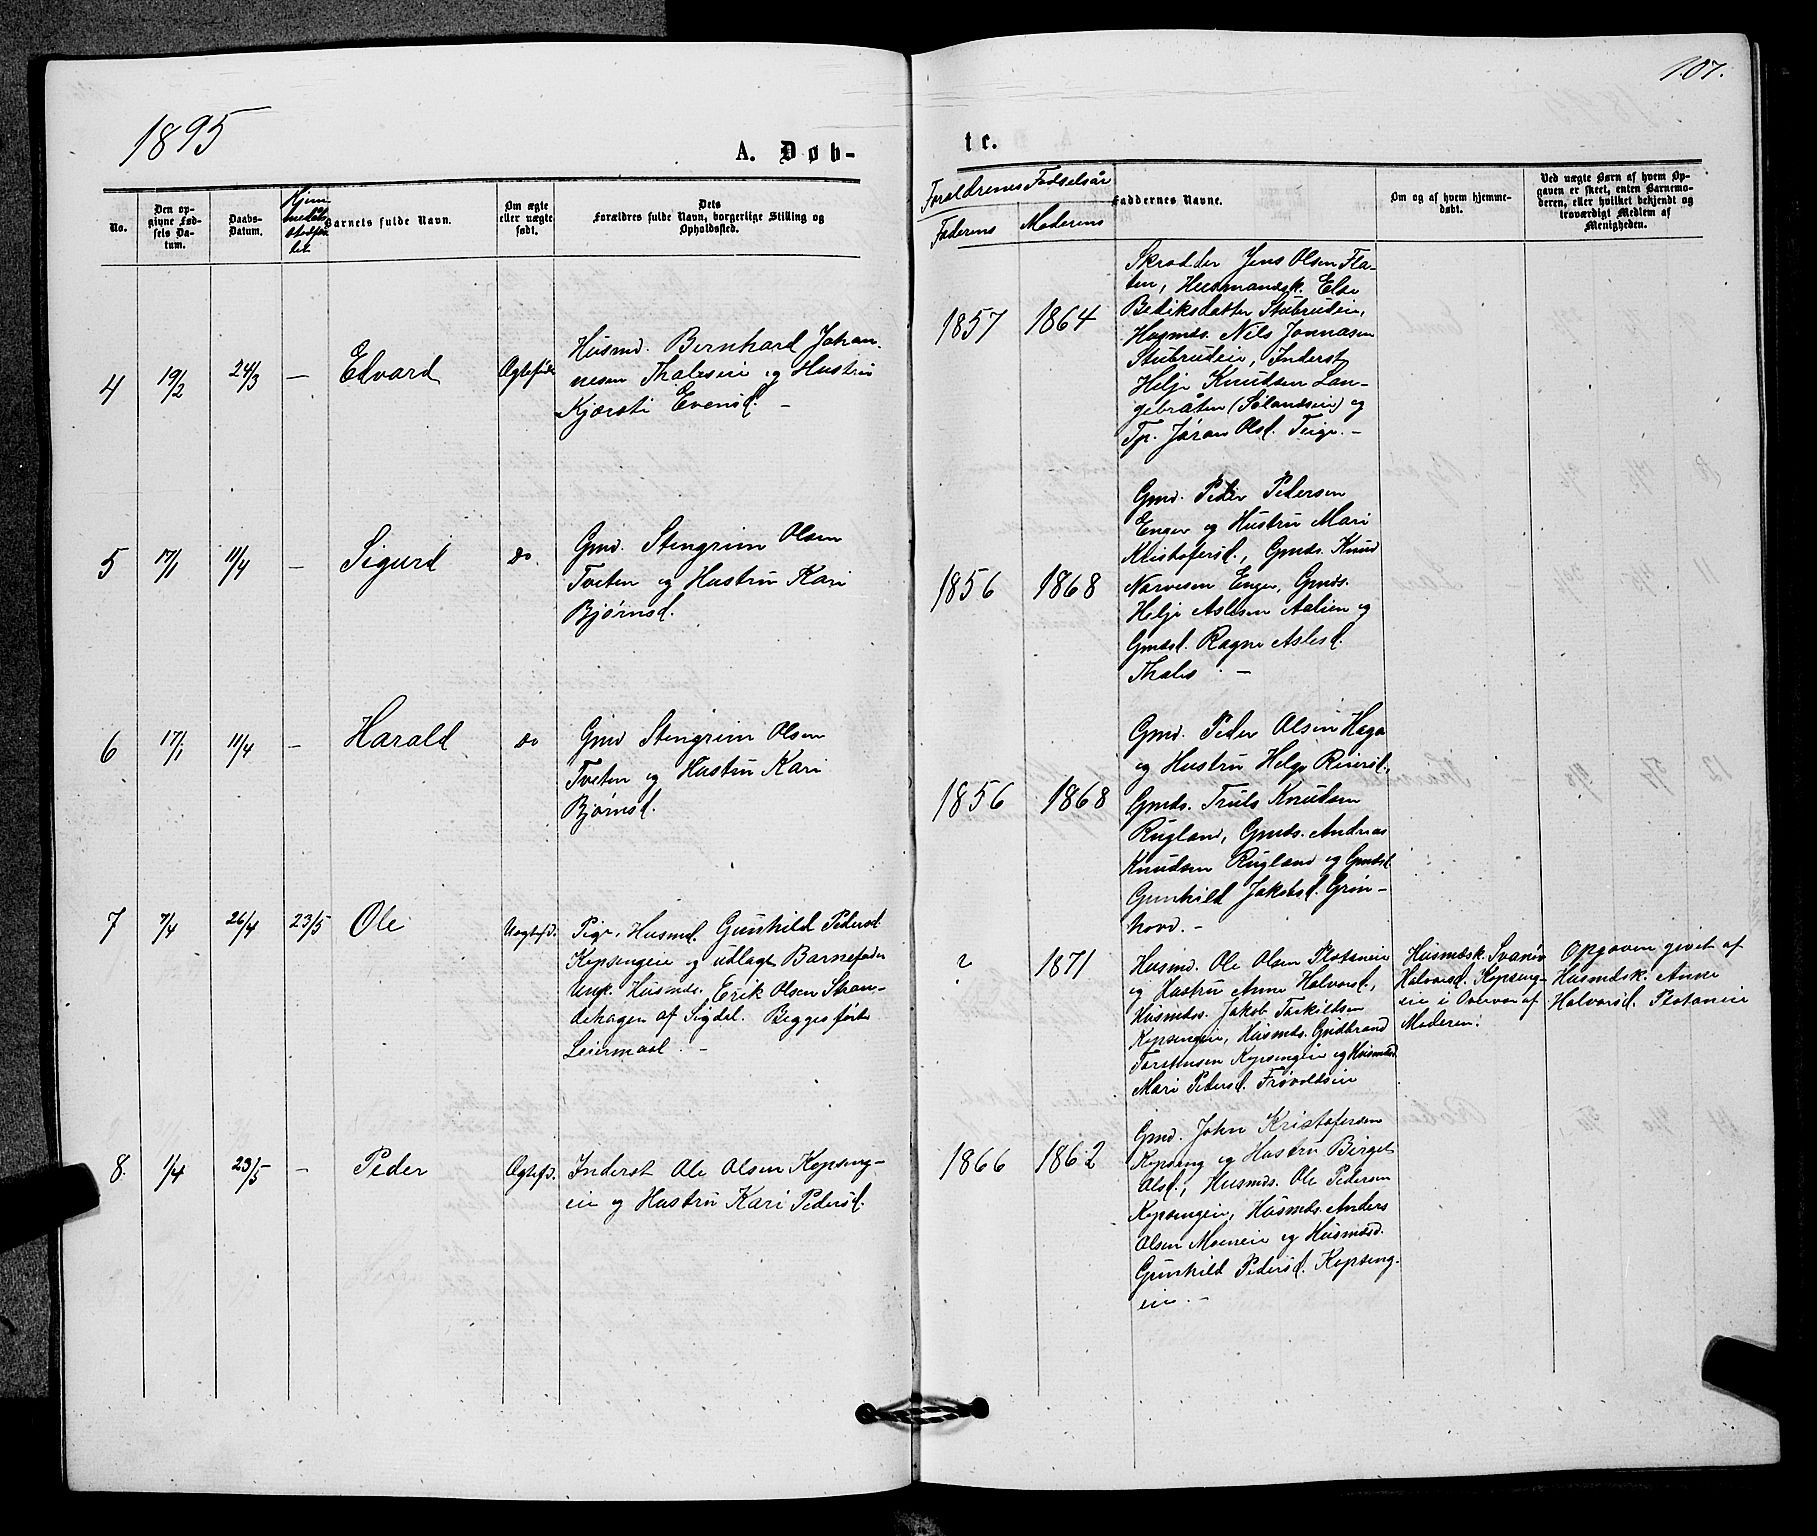 107.
1895
A. Døb-
te.
No.
Den op-
givne Fød-
sels Da-
tum.
Daabs-
Datum.
Hjem-
medøbt
Stadfæ-
tet
Barnets fulde Navn.
Om ægte
eller uægte
født.
Dets
Forældres fulde Navn, borgerlige Stilling og
Opholdssted.
Forældrenes Fødselsår
Faderens
Moderens
Faddernes Navne.
Om og af hvem hjemme-
døbt.
Ved uægte Børn af hvem Op-
gaven er skeet, enten Barnemo-
deren, eller hvilket bekjendt og
troværdigt Medlem af
Menigheden.
4
19/2
24/3
—
Edvard
Ægtefødt
Husmd. Bernhard Johan-
nesen Thaleseie og Hustru
Kjærsti Evensd. —
1857
1864
Skrædder Jens Olsen Fla-
ten, Husmandsk. Else
Bediksdatter Stubrudeie,
Hagmds. Nils Jonnasen
Stubrudeie, Inderst
Helje Knudsen Lan-
gebråten (Sølandseie) og
Tp. Jøran Olsd. Teige. —
5
17/1
11/4
—
Sigurd
do.
Gmd. Stengrim Olsen
Tveten og Hustru Kari
Bjørnsd.
1856
1868
Gmd. Peder Pedersen
Enger og Hustru Mari
Kristofersd., Gmds. Knud
Narvesen Enger, Gmds.
Helje Aslesen Aalien og
Gmdsd. Ragne Aslesd.
Thales. —
6
17/1
11/4
—
Harald
do
Gmd Stengrim Olsen
Tveten og Hustru Kari
Bjørnsd.
1856
1868
Gmd. Peder Olsen Haga
og Hustru Helge Reiersd.,
Gmds. Truls Knudsen
Rugland, Gmds. Andreas
Knudsen Rugland og Gmdsd.
Gunhild Jakobsd. Grøn-
hovd. —
7
7/4
26/4
23/5
Ole
Uægtefd.
Pige, Husmd. Gunhild Pedersd.
Kopsengeie og udlagt Barnefader
Ungk. Husmds. Erik Olsen Stran-
dehagen af Sigdal. Begges første
Leiermaal. —
?
1871
Husmd. Ole Olsen Plataneie
og Hustru Anne Halvorsd.,
Husmds. Jakob Torkildsen
Kopsengeie, Husmds. Gudbrand
Torstensen Kopsengeie og Husmdsd.
Mari Pedersd. Frøvoldseie
Husmdsk. Svanøv
Halvorsd. Kopseng-
eie i Overvær af
Moderen.
Opgaven givet af
Husmdsk. Anne
Halvorsd. Plataneie
8
1/4
23/5
—
Peder
Ægtefd.
Inderst Ole Olsen Kopseng-
eie og Hustru Kari Pedersd.
1866
1862
Gmd. John Kristofersen
Kopseng og Hustru Birget
Olsd., Husmds. Ole Pedersen
Kopsengeie, Husmds. Anders
Olsen Moeneie og Husmdsd.
Gunhild Pedersd. Kopseng-
eie. —